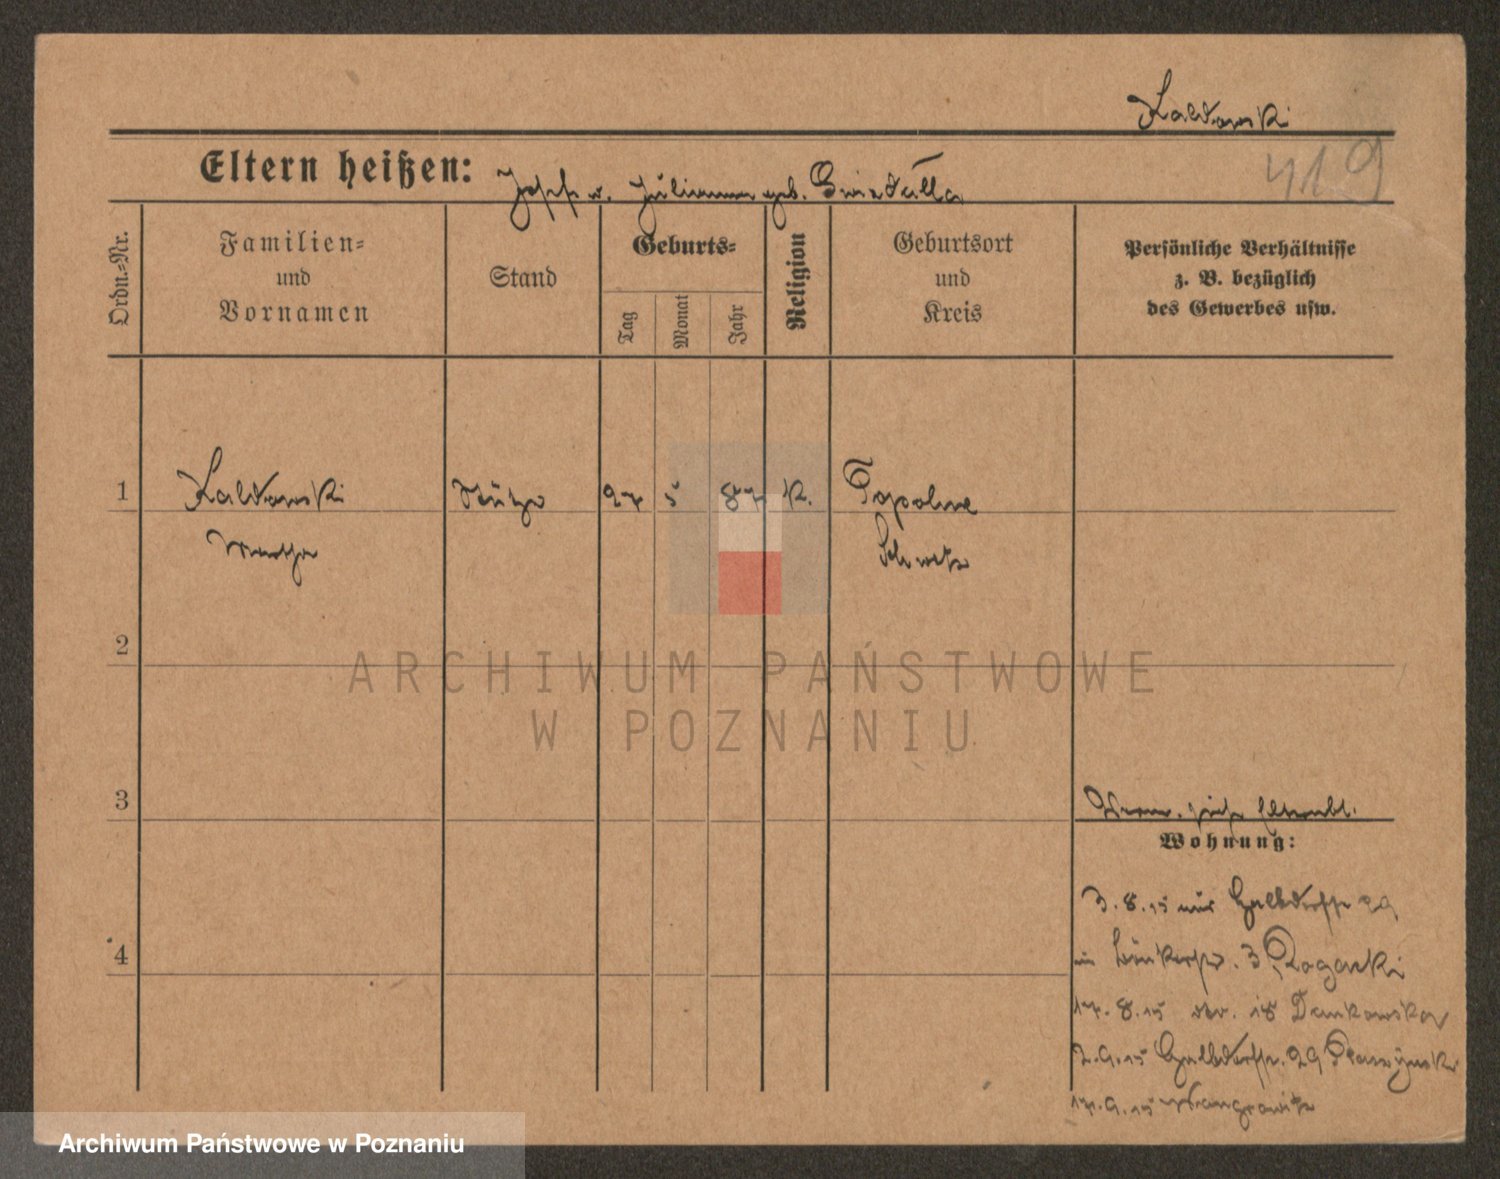 Kaldowski
419
Eltern heißen: Josef u. Julianna geb. Gwizdalla
Ordn.-Nr.
Familien-
und
Vornamen
Stand
Geburts-
Tag
Monat
Jahr
Religion
Geburtsort
und
Kreis
Persönliche Verhältnisse
z. B. bezüglich
des Gewerbes usw.
1 Kaldowski Stütze 27 5 87 K. Topolno
Martha Schwetz
2
ARCHIWUM PAŃSTWOWE
W POZNANIU
3
Wohnung:
3.8.15 aus 29
4
3 Rogacki
17.8.15 18 Dankowska
2.9.15 29
17.9.15 Wongrowitz
Archiwum Państwowe w Poznaniu